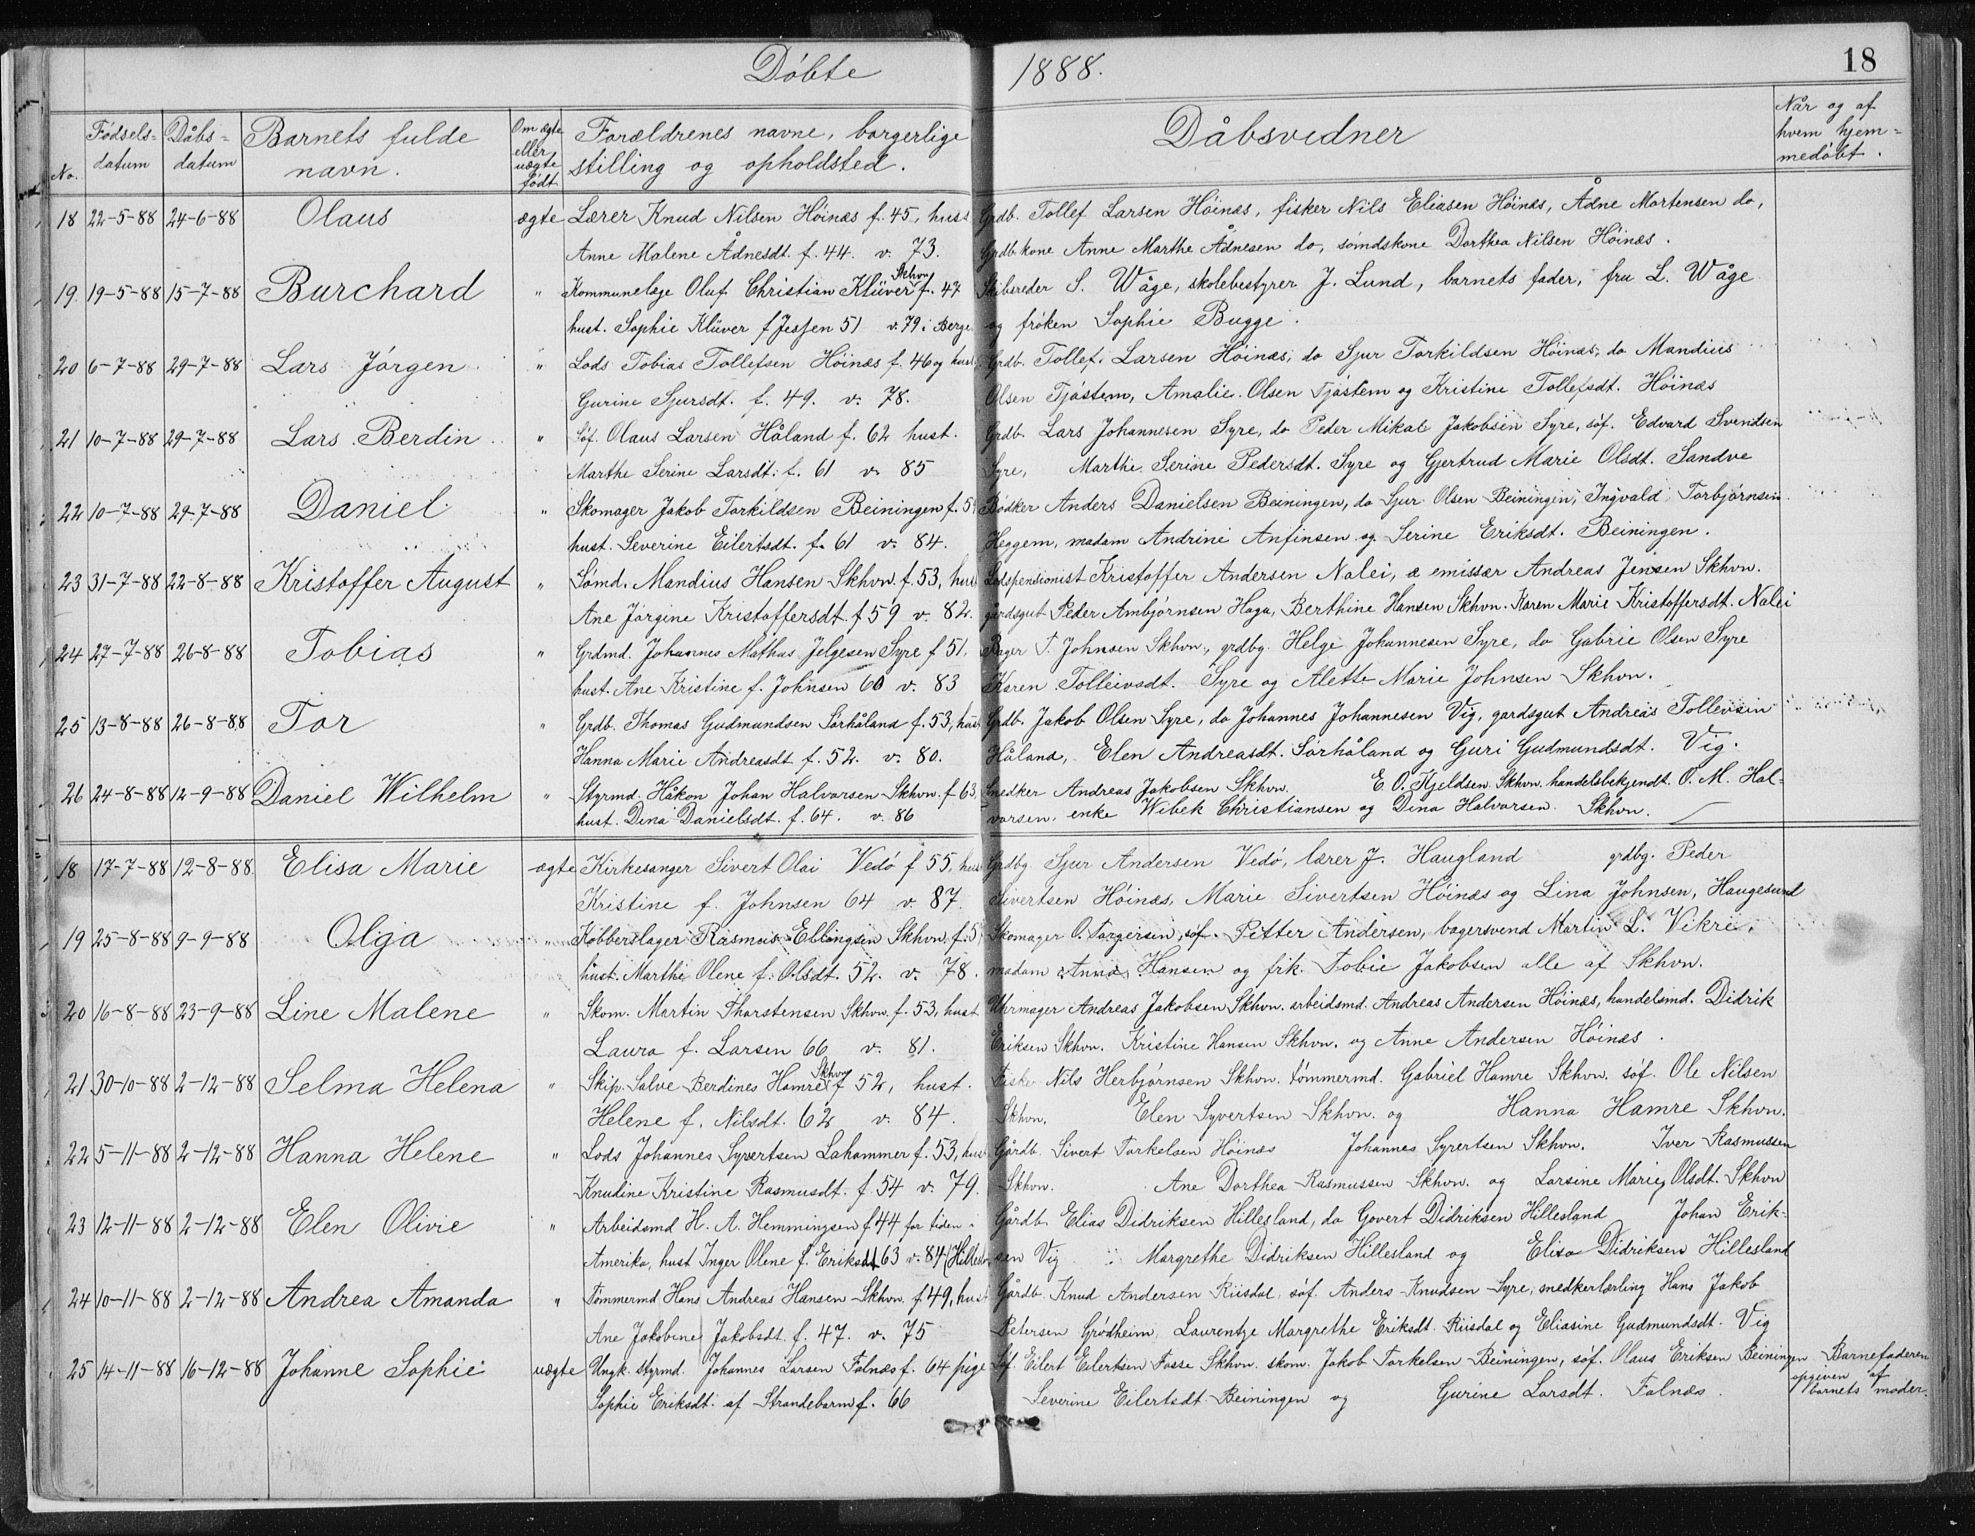 Döbte 1888. 18
No. Fødsels-datum Dåbs-datum Barnets fulde navn. Om ægte eller uægte født Forældrenes navne, borgerlige stilling og opholdsted. Dåbsvidner Når og af hvem hjem-medöbt.
18 22-5-88 24-6-88 Olaus ægte Lærer Knud Nilsen Höinæs f. 45, hust Grdb. Tollef Larsen Höinæs, fisker Nils Eliasen Höinæs, Ådne Mortensen do,
Anne Malene Ådnesdt. f. 44. v. 73. Grdb. kone Anne Marthe Ådnesen do, sömdskone Dorthea Nilsen Höinæs.
19. 19-5-88 15-7-88 Burchard " Kommunelæge Oluf Christian Klüver Skhvn f. 47 Skibsreder S. Wåge, skolebestyrer J. Lund, barnets fader, fru L. Wåge
hust. Sophie Klüver f Jessen 51 v. 79 i Berge og fröken Sophie Bugge.
20 6-7-88 29-7-88 Lars Jörgen " Lods Tobias Tollefsen Höinæs f. 46 og hust Grdb. Tollef Larsen Höinæs, do Sjur Torkildsen Höinæs, do Mandius
Gurine Sjursdt. f. 49. v. 78. Olsen Tjöstem, Amalie Olsen Tjöstem og Kristine Tollefsdt. Höinæs
21 10-7-88 29-7-88 Lars Berdin " Söf. Olaus Larsen Håland f. 62 hust. Grdb. Lars Johannesen Syre, do Peder Mikal Jakobsen Syre, söf. Edvard Svendsen
Marthe Serine Larsdt. f. 61 v. 85 Syre, Marthe Serine Pedersdt. Syre og Gjertrud Marie Olsdt. Sandve
22 10-7-88 29-7-88 Daniel " Skomager Jakob Torkildsen Beiningen f. 5 Bödker Anders Danielsen Beiningen, do Sjur Olsen Beiningen, Ingvald Torbjörnsen
hust. Severine Eilertsdt. f. 61 v. 84. Heggem, madam Andrine Anfinsen og Serine Eriksdt. Beiningen.
23 31-7-88 22-8-88 Kristoffer August " Sömd. Mandius Hansen Skhvn. f. 53, hus Lodspensionist Kristoffer Andersen Nalei, æ emissær Andreas Jensen Skhvn.
Ane Jörgine Kristoffersdt. f 59 v. 82. gårdsgut Peder Ambjörnsen Haga, Berthine Hansen Skhvn. Karen Marie Kristoffersdt. Nalei
24 27-7-88 26-8-88 Tobias " Grdmd. Johannes Mathus Jelgesen Syre f 51, Bager T. Johnsen Skhvn., grdbg. Helge Johannesen Syre, do Gabrie Olsen Syre
hust. Ane Kristine f. Johnsen 60 v. 83 Karen Tolleivsdt. Syre og Alette Marie Johnsen Skhvn.
25 13-8-88 26-8-88 Tor " Grdb. Thomas Gudmundsen Sörhåland f. 53, hust Grdb. Jakob Olsen Syre, do Johannes Johannesen Vig, gardsgut Andreas Tollevsen
Hanna Marie Andreasdt f. 52. v. 80. Håland, Elen Andreasdt. Sörhåland og Guri Gudmundsdt. Vig.
26 24-8-88 12-9-88 Daniel Wilhelm " Styrmd. Håkon Johan Halvorsen Skhvn. f 63, Snedker Andreas Jakobsen Skhvn. E. O. Kjeldsen Skhvn. handelsbekjendt. O. M. Hal-
hust. Dina Danielsdt. f. 64. v. 86 vorsen. enke Wibek Christiansen og Dina Halvorsen Skhvn.
18 17-7-88 12-8-88. Elisa Marie ægte Kirkesanger Sivert Olai Vedö f 55, hus Grdbg Sjur Andersen Vedö, lærer J. Haugland grdbg. Peder
Kristine f. Johnsen 64 v. 87. Sivertsen Höinæs, Marie Sivertsen Höinæs og Lina Johnsen, Haugesund
19 25-8-88 9-9-88 Olga " Kobberslager Rasmus Ellingsen Skhvn. f. 5 Skomager O. Torgersen, söf. Petter Andersen, bagersvend Martin L. Vikre,
hust. Marthe Olene f. Olsdt. 52. v. 78. madam Anna Hansen og frk. Tobie Jakobsen alle af Skhvn.
20 16-8-88 23-9-88 Line Malene " Skom. Martin Thorstensen Skhvn. f. 53, hust Uhrmager Andreas Jakobsen Skhvn. arbeidsmd. Andreas Andersen Höinæs, handelsmd. Didrik
Laura f. Larsen 66 v. 81. Eriksen Skhvn. Kristine Hansen Skhvn. og Anne Andersen Höinæs.
21 30-10-88 2-12-88 Selma Helena " Skip. Salve Berdines Hamre Skhvn f 52, hust. Fisker Nils Herbjörnsen Skhvn. tömmermd. Gabriel Hamre Skhvn. söf. Ole Nilsen
Helene f. Nilsdt. 62 v. 84. Skhvn. Elen Syvertsen Skhvn. og Hanna Hamre Skhvn.
22 5-11-88 2-12-88 Hanna Helene " Lods Johannes Syvertsen Lahammer f. 53, hus Gårdb. Sivert Torkelsen Höinæs Johannes Syvertsen Skhvn. Iver Rasmussen
Knudine Kristine Rasmusdt. f. 54 v. 79. Skhvn. Ane Dorthea Rasmussen Skhvn. og Larsine Marie Olsdt. Skhvn
23 12-11-88 2-12-88 Elen Olivie " Arbeidsmd H. A. Hemmingsen f 44 for tiden i Gårdb. Elias Didriksen Hillesland, do Govert Didriksen Hillesland Johan Erik-
Amerika, hust Inger Olene f. Eriksdt 63 v. 84 (Hillesl sen Vig Margrethe Didriksen Hillesland og Elisa Didriksen Hillesland
24 10-11-88 2-12-88 Andrea Amanda " Tömmermd Hans Andreas Hansen Skhvn. f 49, hust Gårdb. Knud Andersen Riisdal, söf. Anders Knudsen Syre, snedkerlærling Hans Jakob
Ane Jakobine Jakobsdt. f. 47. v. 75 Petersen Grödheim, Laurentze Margrethe Eriksdt. Riisdal og Eliasine Gudmundsdt. Vig
25 14-11-88 16-12-88 Johanne Sophie uægte Ungk. styrmd. Johannes Larsen Falnæs f. 64 pige Söf. Eilert Eilertsen Fosse Skhvn. skom. Jakob Torkelsen Beiningen, söf. Olaus Eriksen Beiningen Barnefaderen
Sophie Eriksdt. af Strandebarm f. 66 Severine Eilertsdt Beiningen og Gurine Larsdt. Falnæs. opgiven af barnets moder.